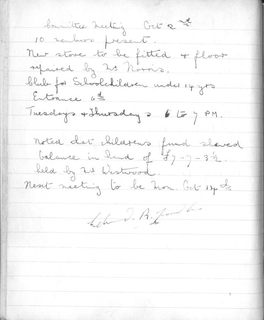 Committee Meeting Oct 2nd
10 members present.
New stove to be fitted & floor
repaired by Mr Norris.
Club for Schoolchildren under 14 yrs
Entrance 6d
Tuesdays & Thursdays 6 to 7 PM.
Noted that children's fund showed
balance in hand of £7-7-3½
held by Mr Westwood.
Next meeting to be Mon. Oct 14th